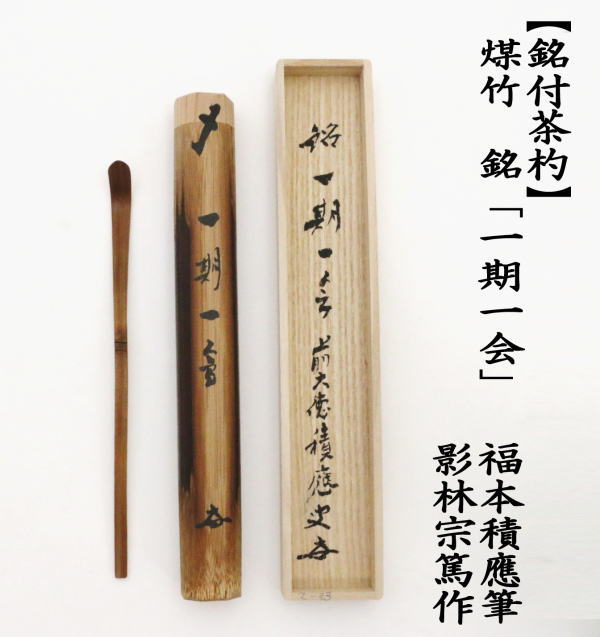 【銘付茶杓】
煤竹 銘「一期一会」
福本積應筆
影林宗篤作
銘 一期一会 前大徳積應叟
〆 一期一會
2-23